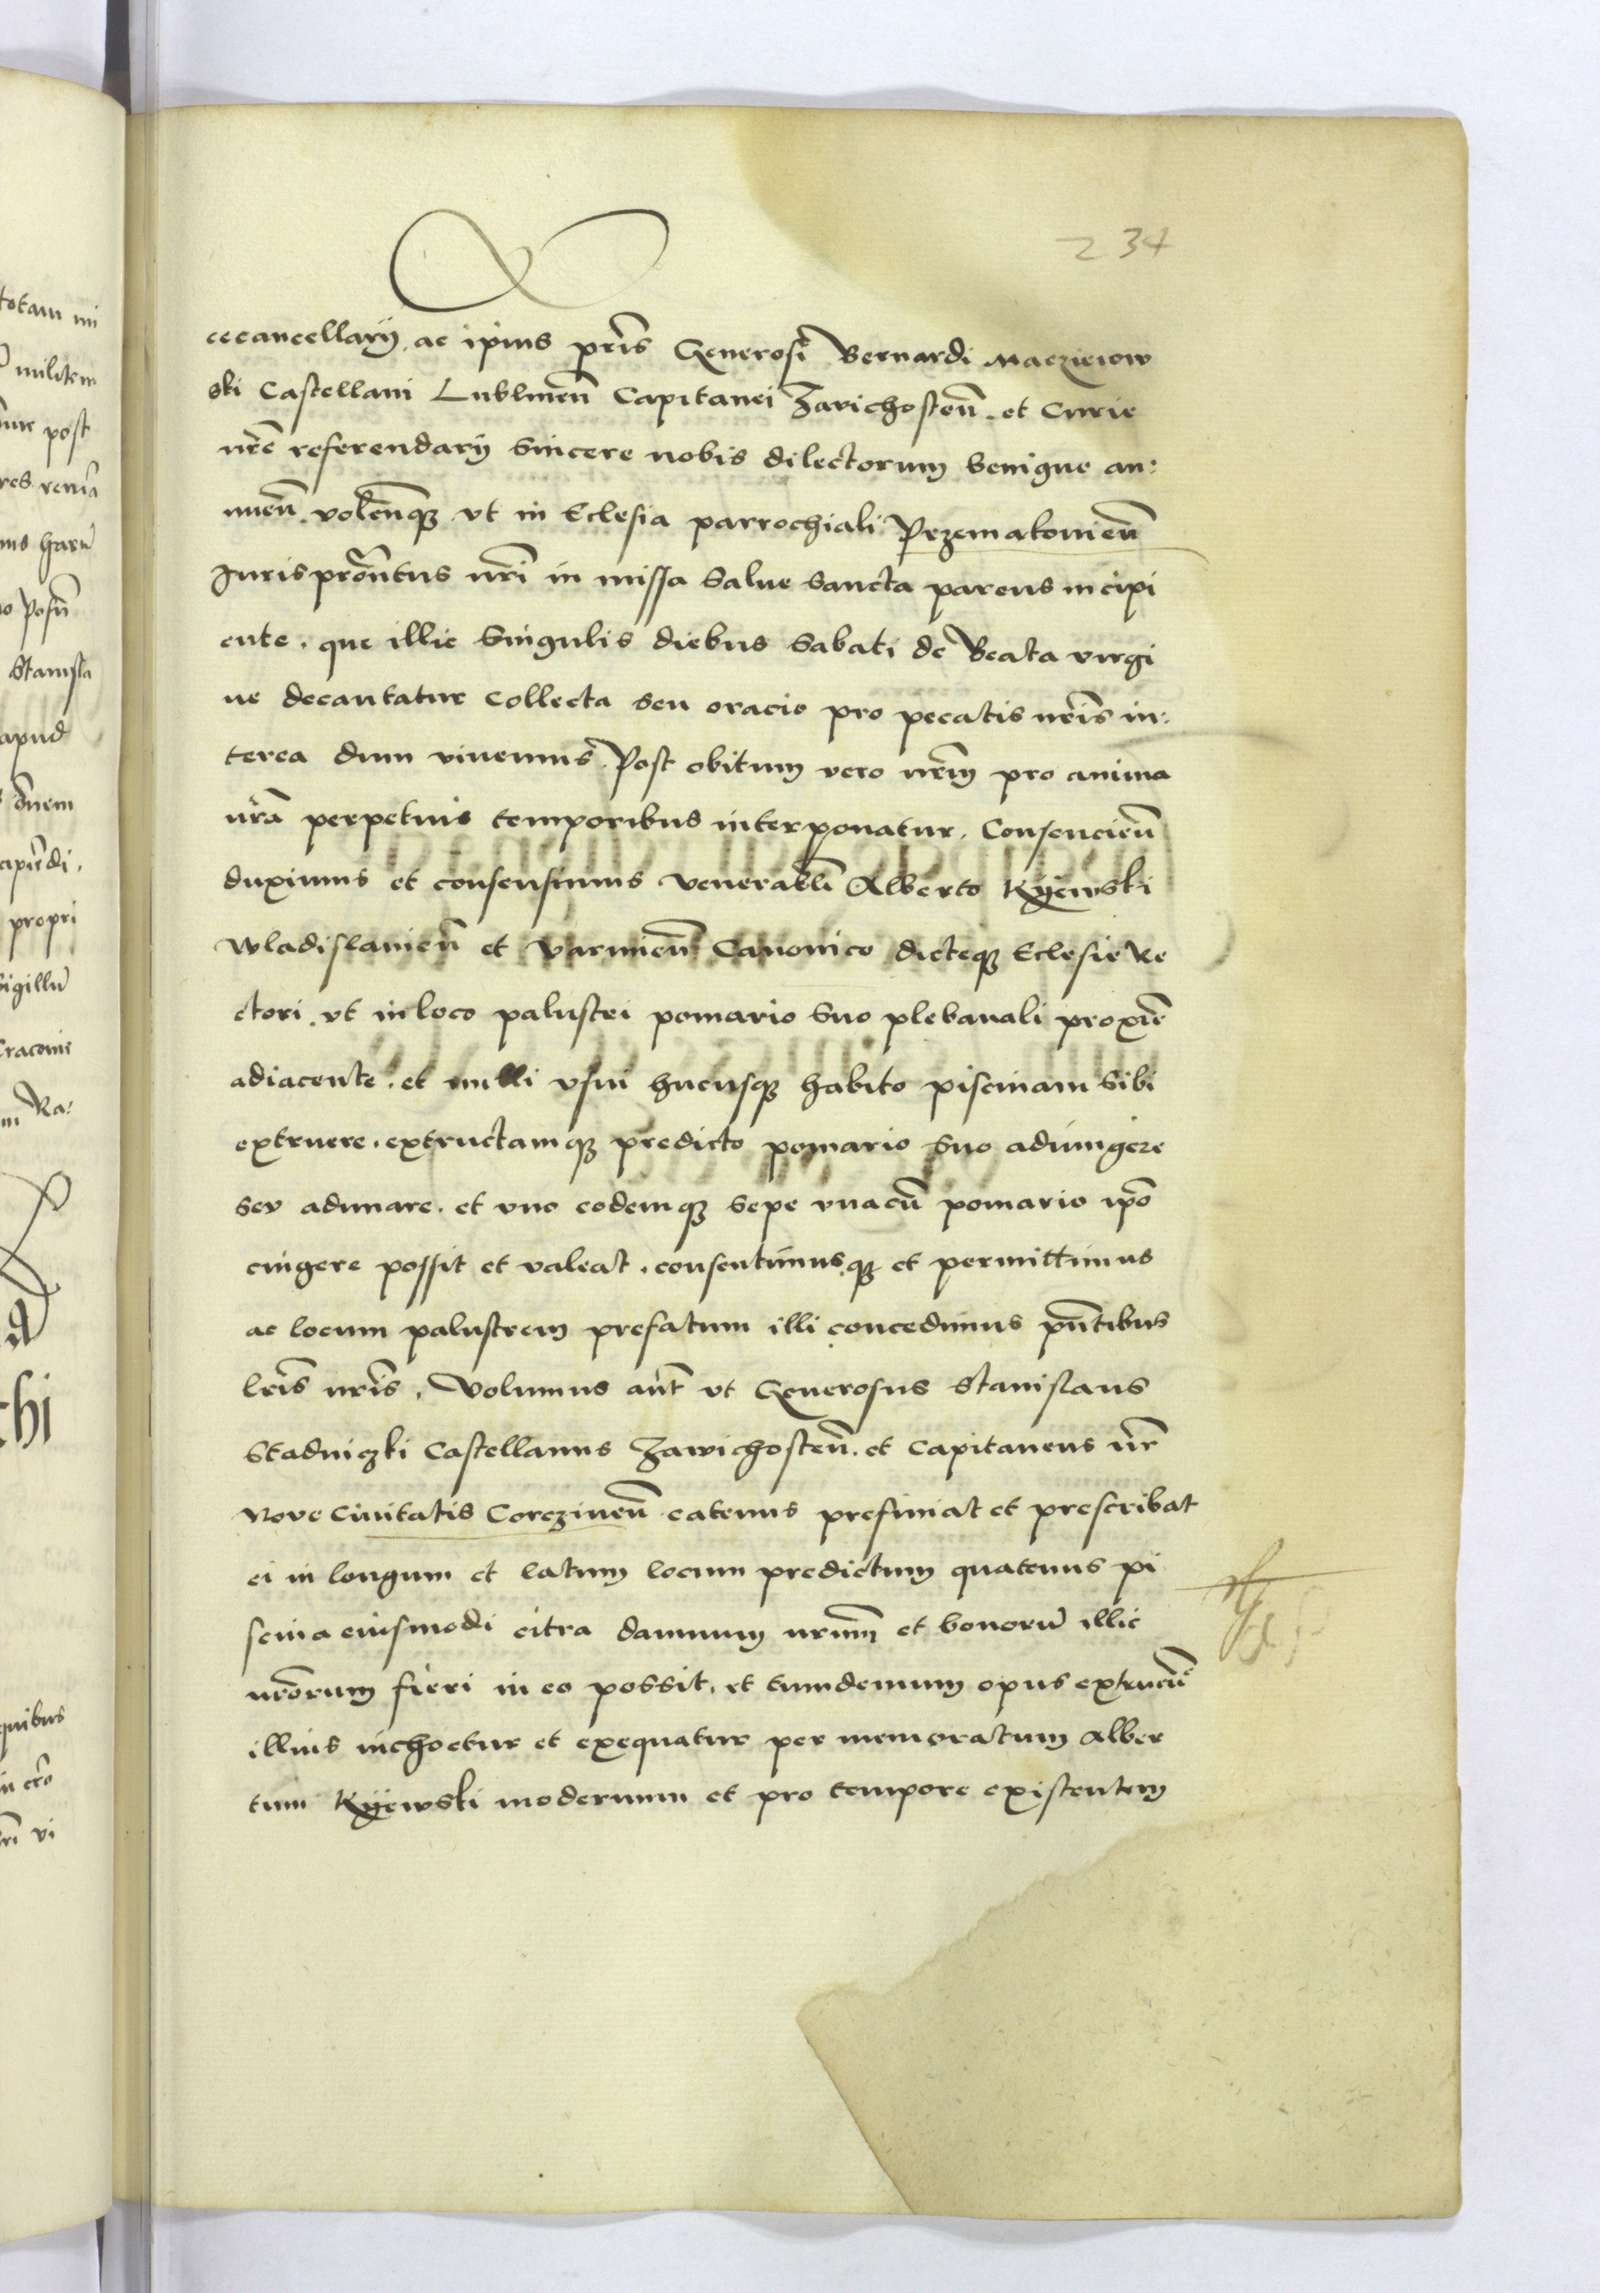 234
cecancellarij ac ipius pris Generosi Bernardi Maczieiow
ski Castellani Lublinen Capitanei Zavichosten. et Curie
nre referendarij sincere nobis dilectorum benigne an:
nuen. volenque vt in Eclesia parrochiali Przemakonien
Juris nri in missa Salue sancta parens incipi
ente. que illic singulis diebus Sabati de Beata virgi
ne decantatur Collecta seu oracio pro pecatis nris in:
terea dum viuemus. Post obitum vero nrm pro anima
nra perpetuis temporibus interponatur. Consencien
duximus et consensimus venerabli Alberto Kÿewski
Wladislauien et Varmien Canonico dicteque Eclesie Re
ctori. vt in loco palustri pomario suo plebanali proxime
adiacente. et nulli vsui hucusque habito piscinam sibi
extruere. extructamque predicto pomario suo adiungere
seu adunare. et vno eodemque sepe vnacu pomario ipo
cingere possit et valeat. consentimusque et permittimus
ac locum palustrem prefatum illi concedimus pntibus
lris nris. Volumus aut vt Generosus Stanislaus
Stadniczki Castellanus Zawichosten. et Capitaneus nr
Nove Ciuitatis Corczinen eatenus prefiniat et prescribat
ei in longum et latum locum predictum quatenus pi
scina eiusmodi citra damnum nrum et bonoru illic
nrorum fieri in eo possit. et tumdemum opus
illius inchoetur et exequatur per memoratum Alber
tum Kÿewski modernum et pro tempore existentem